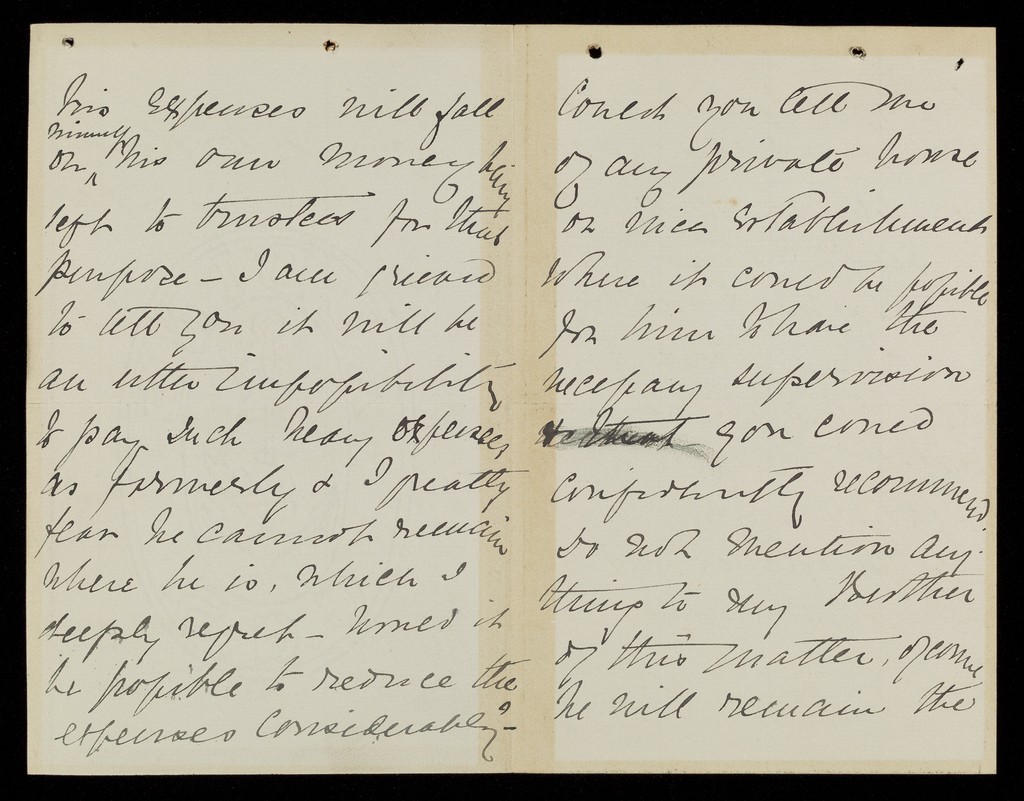 his expenses will fall
on ^himself his own money being
left to trustees for that
purpose – I am grieved
to tell you it will be
an utter impossibility
to pay such heavy expenses
as formerly & I greatly
fear he cannot remain
where he is, which I
deeply regret – Would it
be possible to reduce the
expenses considerably? –
Could you tell me
of any private house
or nice Establishment
where it could be possible
for him to have the
necessary supervision
you could
confidently recommend
Do not mention any-
thing to my Brother
of this matter, of course
he will remain the